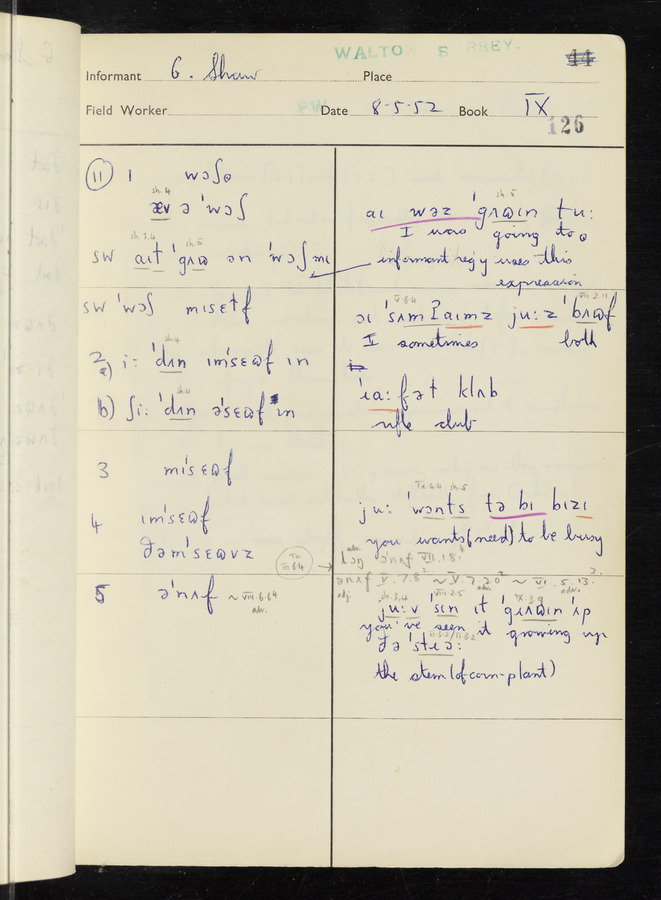 WALTON S RREY.
44
Informant G. Shaw Place
Field Worker PW Date 8-5-52 Book IX
126
11 1 wɔʃə
sh.4
æv ə 'wɔʃ
sh.3,4 sh.5
sw aıt 'gʌɷ ən 'wɔʃ mı
sw 'wɔʃ mısɛɫf
sh.4
2a) i: 'dʌn ım'sɛɷf ın
sh.4
b) ʃi: 'dʌn ə'sɛɷf ın
3 mı'sɛɷf
4 ım'sɛɷf
ðəm'sɛɷvz
5 ə'nʌf ~ VIII.6.64
adv.
sh.5
aı wəz 'gʌɷın tu:
I was going to
informant reg'y uses this
expression
V.8.4 VII.2.11
ɔı 'sʌmʔaımz ju:z 'bʌɷf
I sometimes both
'ıa:fəɫ klʌb
rifle club
IX.4.4 sh.5
ju: 'wɔnts tə bı bızı
you wants (need) to be busy
adj. V.7.8 ~ V.7.20 ~ VI.5.13.
adv.
sh.3,4 VIII.2.5 IX.3.9
ju:v 'sın ıt 'gɹʌɷın ʌp
you've seen it growing up
ðə 'stıə:
the stem (of corn-plant)